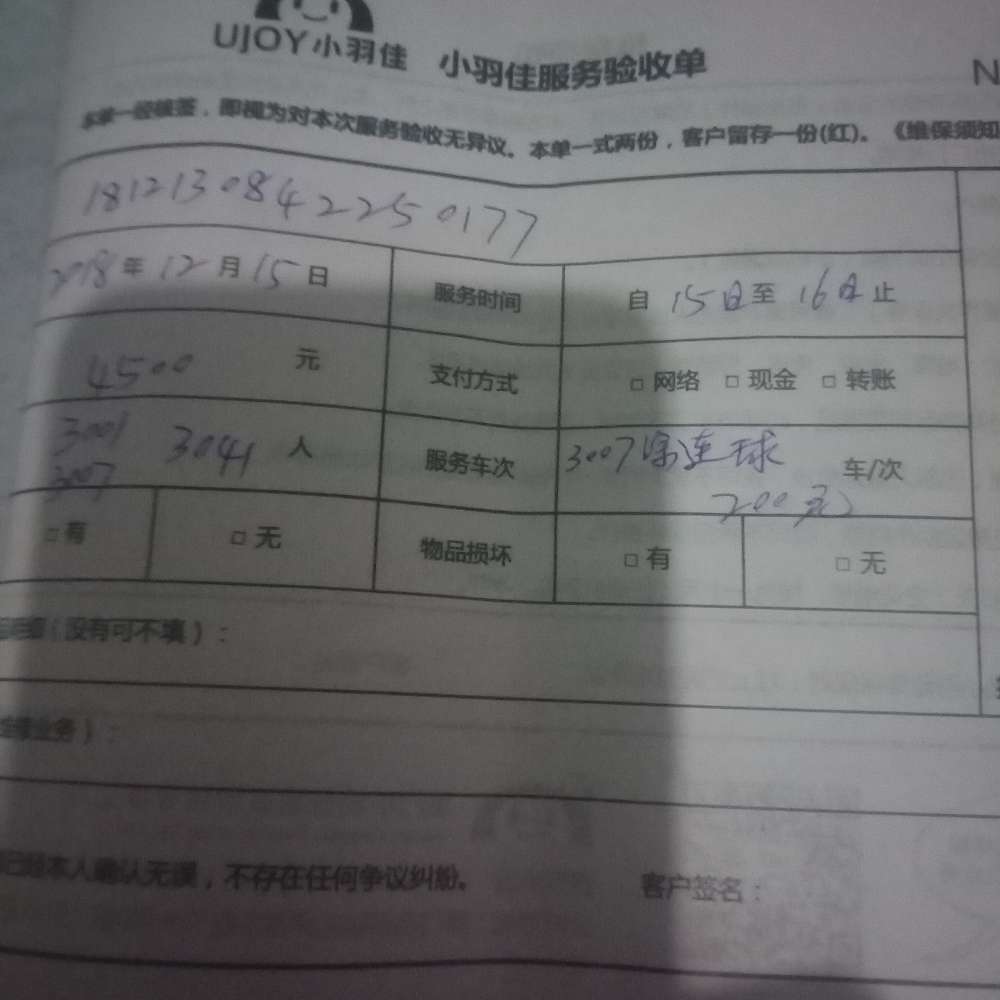 UJOY小羽佳 小羽佳服务验收单 N
本单一经核签，即视为对本次服务验收无异议。本单一式两份，客户留存一份(红)。《维保须知
1812130842250177
2018年12月15日 服务时间 自 15日至 16日止
4500 元 支付方式 □ 网络 □ 现金 □ 转账
3001 3041 人 服务车次 3007 连球 车/次
3007 200元
□ 有 □ 无 物品损坏 □ 有 □ 无
(没有可不填)：
业务)：
本人确认无误，不存在任何争议纠纷。 客户签名：